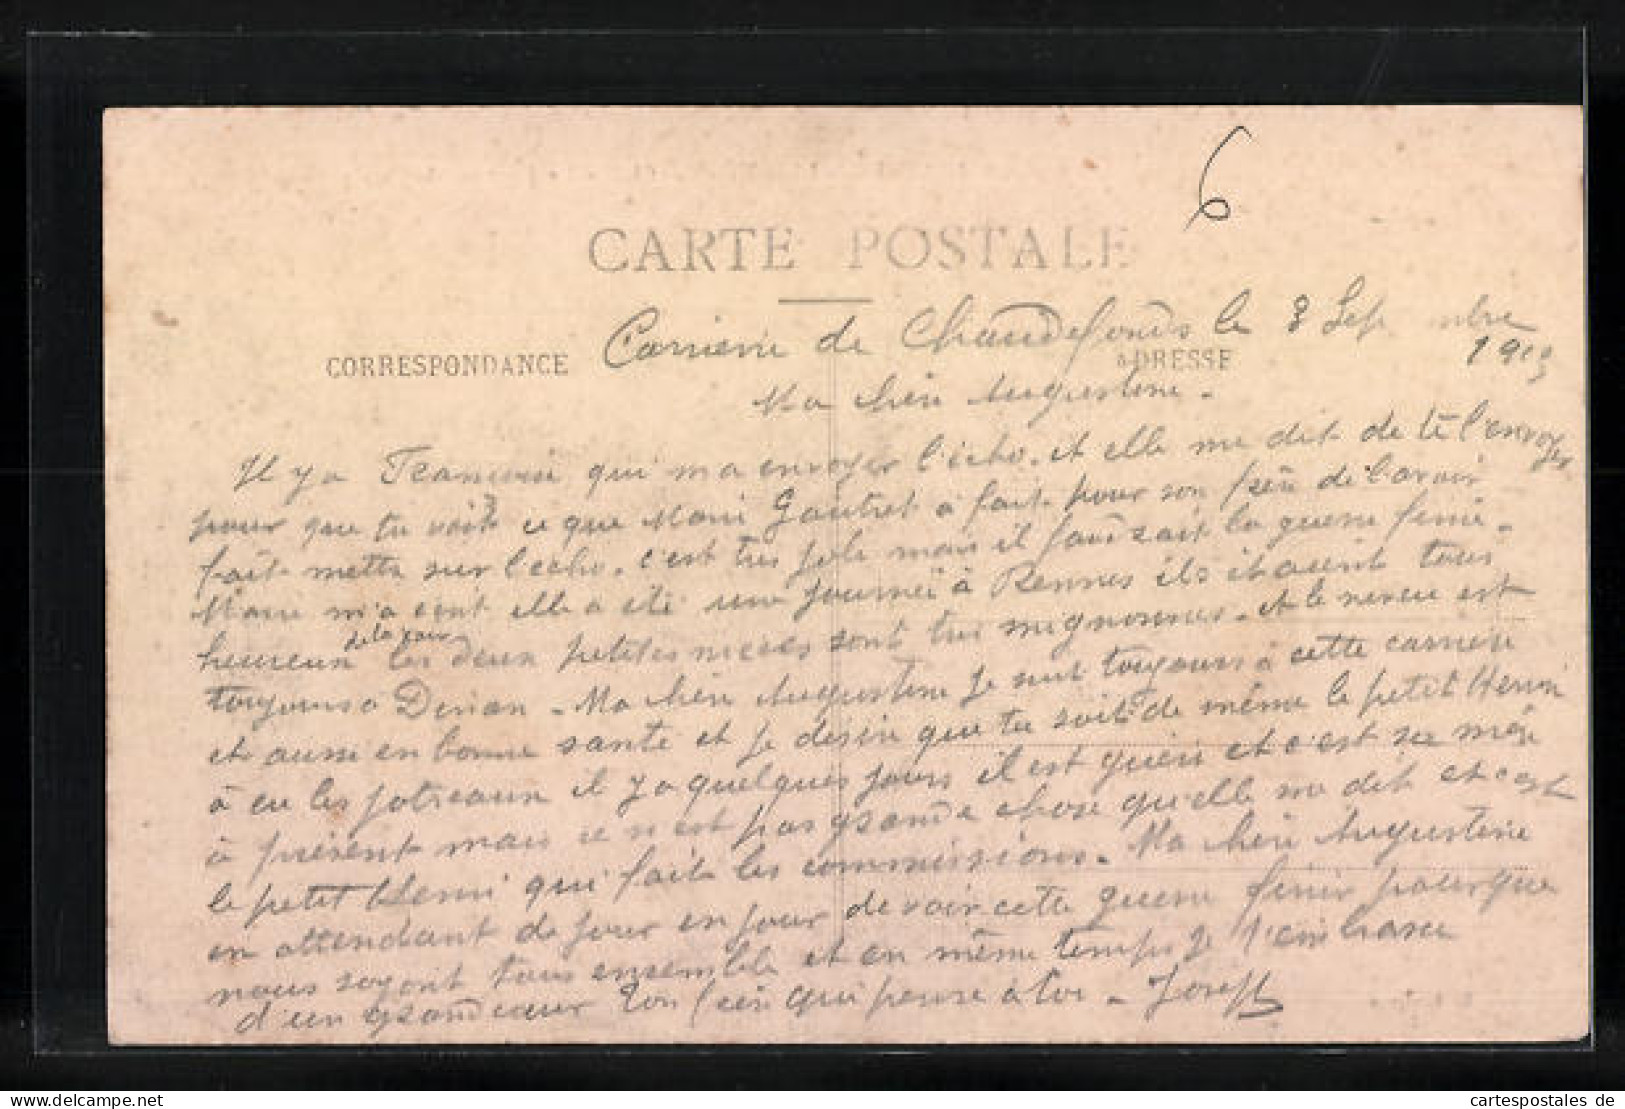 6
CARTE POSTALE
Carrière de Chaudefonds le 3 Sep mbre
CORRESPONDANCE
ADRESSE
191
Ma chère Augustine.
Il y a qui m a envoyer l'écho. et elle me dit de te l'envoyer
pour que tu voit ce que Marie Gautret a fait pour son frère de l'avoir
fait mettre sur l'écho. c'est très jolie mais il faudrait la guerre finie.
Marie m'a écrit elle a été une journée à Rennes ils étaient tous
heureux de la voir les deux petites nieces sont très mignonnes. et le neveu est
toujours a Derian. Ma chère Augustine je suit toujours à cette carrière
et aussi en bonne santé et je désire que tu soit de même le petit Henri
à eu les il y a quelques jours il est guéri et c'est sa mère
à présent mais ce n'est pas grande chose qu'elle me dit et c'est
le petit Henri qui fait les commissions. Ma chère Augustine
en attendant de jour en jour de voir cette guerre finir pour que
nous soyont tous ensemble et en même temps je t'embrasse
d'un grand cœur Ton frère qui pense à toi. Joseph
cartespostales de
www.cartespostales.de